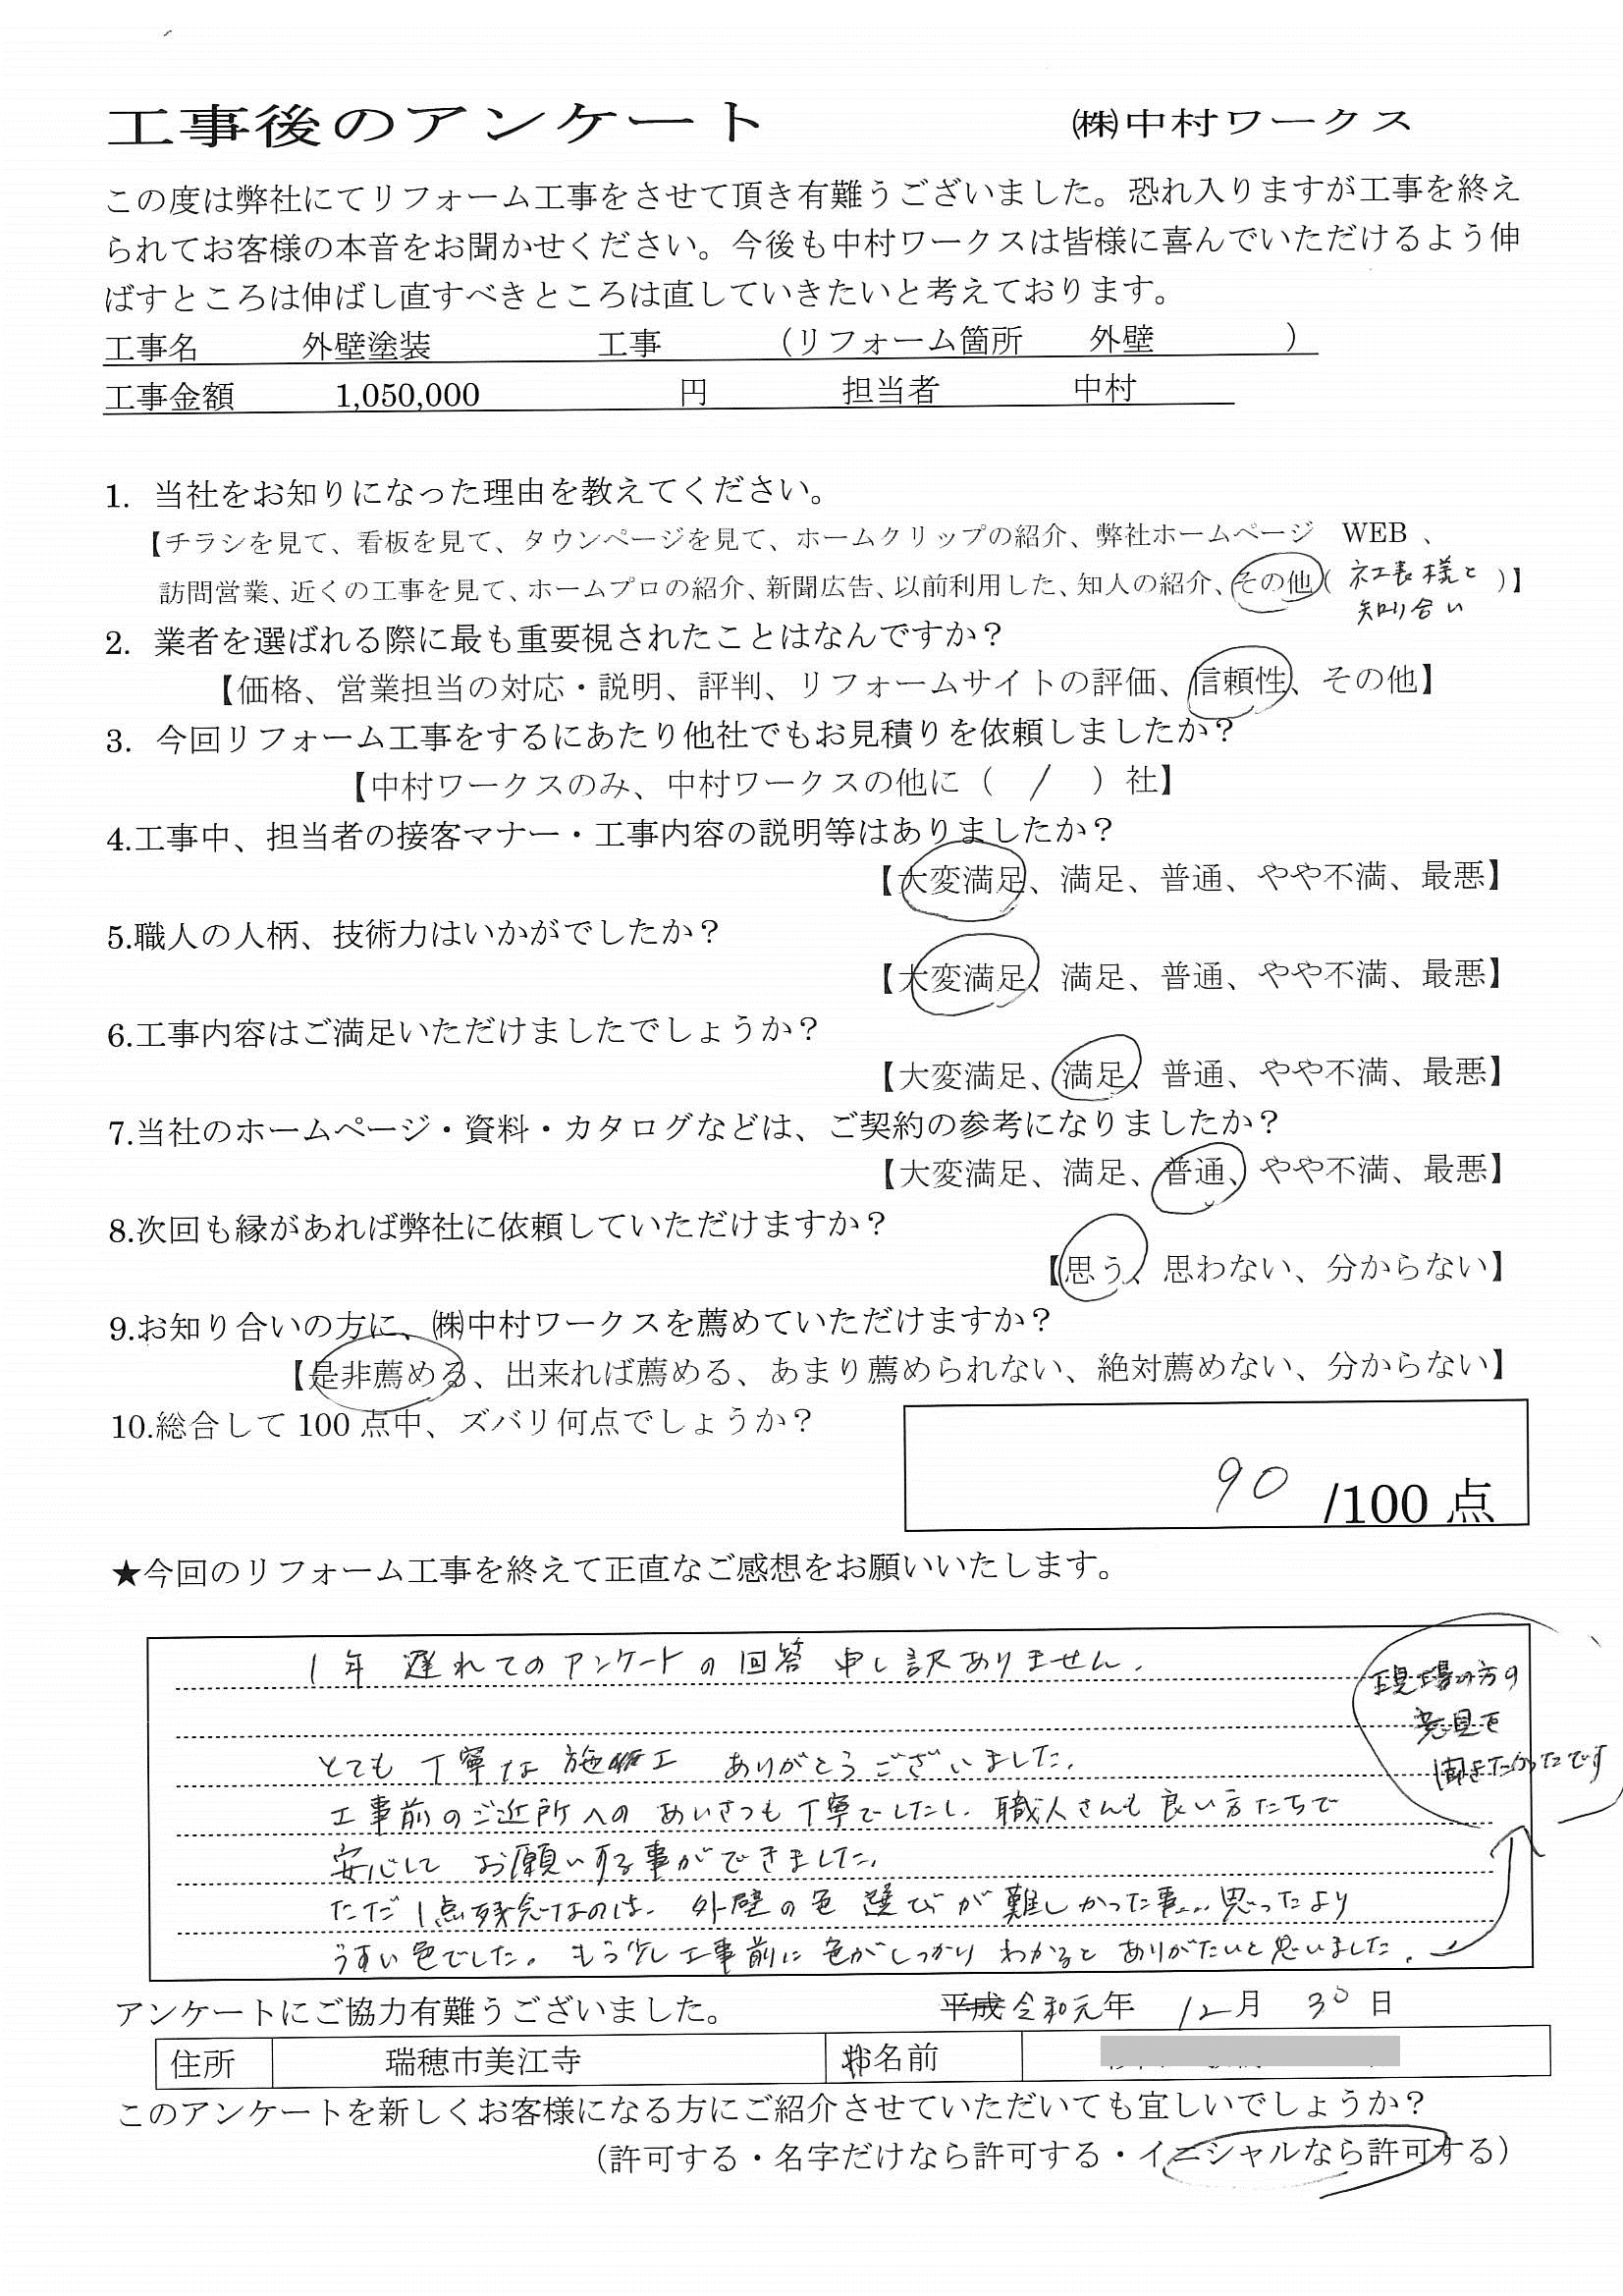 工事後のアンケート ㈱中村ワークス
この度は弊社にてリフォーム工事をさせて頂き有難うございました。恐れ入りますが工事を終え
られてお客様の本音をお聞かせください。今後も中村ワークスは皆様に喜んでいただけるよう伸
ばすところは伸ばし直すべきところは直していきたいと考えております。
工事名 外壁塗装 工事 （リフォーム箇所 外壁 ）
工事金額 1,050,000 円 担当者 中村
1. 当社をお知りになった理由を教えてください。
【チラシを見て、看板を見て、タウンページを見て、ホームクリップの紹介、弊社ホームページ WEB 、
訪問営業、近くの工事を見て、ホームプロの紹介、新聞広告、以前利用した、知人の紹介、その他（ 社長様と ）】
知り合い
2. 業者を選ばれる際に最も重要視されたことはなんですか？
【価格、営業担当の対応・説明、評判、リフォームサイトの評価、信頼性、その他】
3. 今回リフォーム工事をするにあたり他社でもお見積りを依頼しましたか？
【中村ワークスのみ、中村ワークスの他に（ / ）社】
4.工事中、担当者の接客マナー・工事内容の説明等はありましたか？
【大変満足、満足、普通、やや不満、最悪】
5.職人の人柄、技術力はいかがでしたか？
【大変満足、満足、普通、やや不満、最悪】
6.工事内容はご満足いただけましたでしょうか？
【大変満足、満足、普通、やや不満、最悪】
7.当社のホームページ・資料・カタログなどは、ご契約の参考になりましたか？
【大変満足、満足、普通、やや不満、最悪】
8.次回も縁があれば弊社に依頼していただけますか？
【思う、思わない、分からない】
9.お知り合いの方に、㈱中村ワークスを薦めていただけますか？
【是非薦める、出来れば薦める、あまり薦められない、絶対薦めない、分からない】
10.総合して 100 点中、ズバリ何点でしょうか？
90 /100 点
★今回のリフォーム工事を終えて正直なご感想をお願いいたします。
1年 遅れてのアンケートの回答 申し訳ありません。
現場の方の
意見も
聞きたかったです
とても 丁寧な 施工 ありがとうございました。
工事前のご近所への あいさつも 丁寧でしたし、職人さんも 良い方たちで
安心して お願いする事ができました。
ただ 1点残念なのは、外壁の色 選びが 難しかった事… 思ったより
うすい色でした。もう少し工事前に 色がしっかり わかると ありがたいと思いました。
アンケートにご協力有難うございました。 平成 令和元年 12月 30日
住所 瑞穂市美江寺 お名前
このアンケートを新しくお客様になる方にご紹介させていただいても宜しいでしょうか？
（許可する・名字だけなら許可する・イニシャルなら許可する）